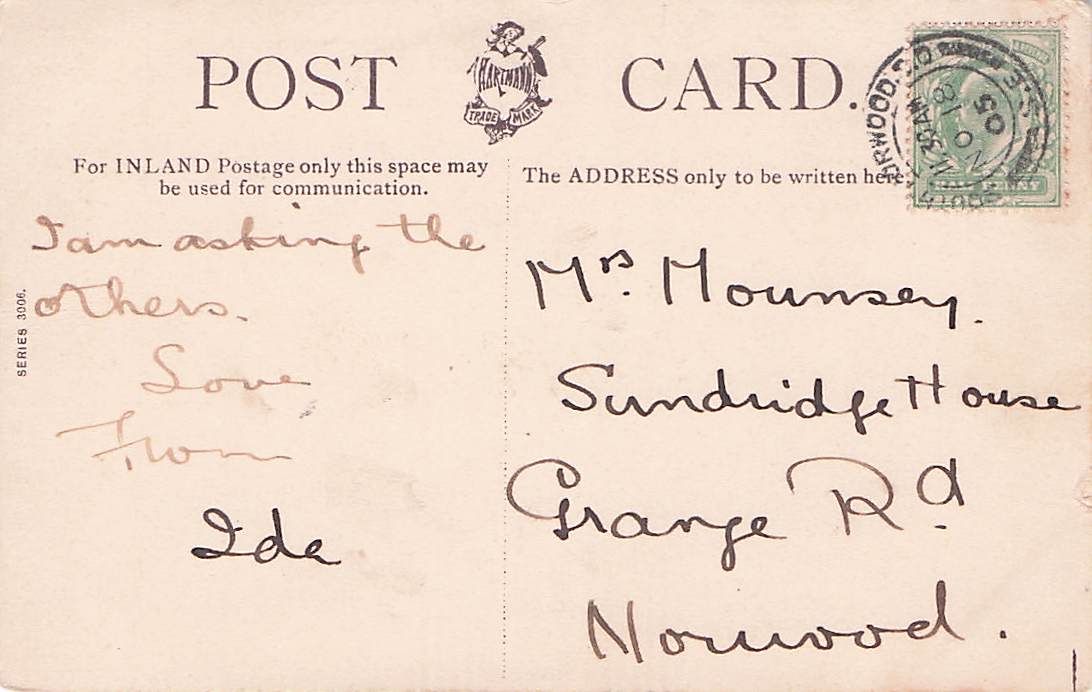 POST CARD.
HARTMANN
TRADE MARK
For INLAND Postage only this space may
be used for communication.
The ADDRESS only to be written here
I am asking the
others.
Love
From
Ida
SERIES 3006.
Mrs. Mounsey.
Sundridge House
Grange Rd
Norwood.
NORWOOD. S.O
S.E
11 30 AM
NO 18
05